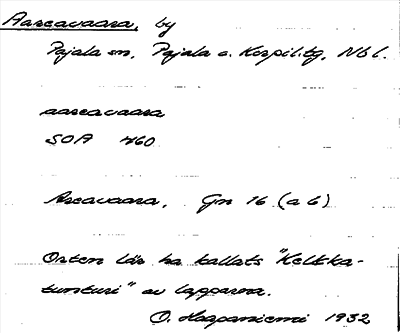 Aareavaara, by
Pajala sn, Pajala o. Korpil. tg, Nb l.
aareavaara
SOA 460
Areavaara, Gn 16 (a b)
Orten lär ha kallats "Keltka-
tunturi" av lapparna.
O. Haapaniemi 1932